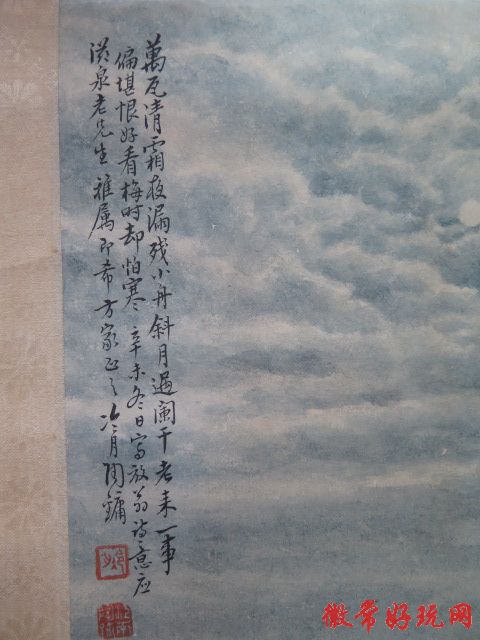 萬瓦清霜夜漏残小舟斜月過闌干老来一事
偏堪恨好看梅时却怕寒辛未冬日写放翁诗意应
滋泉老先生雅属即希方家正之冷月陶鏞
微常好玩网